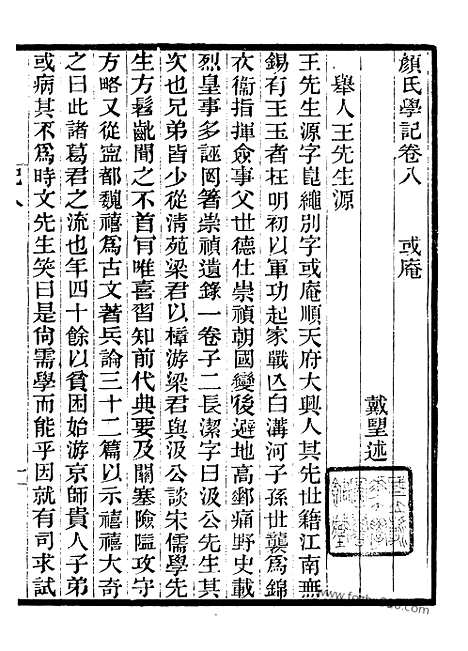 顏氏學記卷八　或庵
戴望述
舉人王先生源
王先生源字崑繩別字或庵順天府大興人其先世籍江南無
錫有王玉者在明初以軍功起家戰亾白溝河子孫世襲爲錦
衣衞指揮僉事父世德仕崇禎朝國變後避地高郵痛野史載
烈皇事多誣罔箸崇禎遺錄一卷子二長潔字曰汲公先生其
次也兄弟皆少從清苑梁君以樟游梁君與汲公談宋儒學先
生方髫齔聞之不首肎唯喜習知前代典要及關塞險隘攻守
方略又從寧都魏禧爲古文著兵論三十二篇以示禧禧大奇
之曰此諸葛君之流也年四十餘以貧困始游京師貴人子弟
或病其不爲時文先生笑曰是尙需學而能乎因就有司求試
記八
一